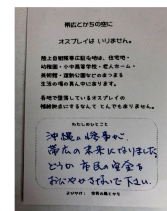 帯広とかちの空に
オスプレイは いりません。
陸上自衛隊帯広駐屯地は、住宅地・
幼稚園・小中高等学校・老人ホーム・
美術館・運動公園などのまつまる
生活の場の真ん中にあります。
各地で墜落しているオスプレイの
機動拠点にするなんて とんでもありません。
わたしのひとこと
沖縄の惨事が、
帯広の未来になりました
どうか 市民の安全を
おびやかさないで下さい。